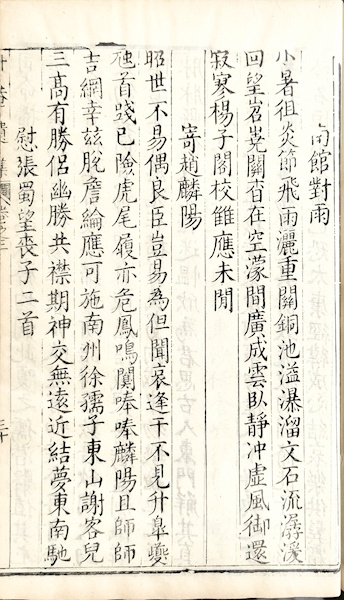 內館對雨
小暑徂炎節飛雨灑重關銅池溢瀑溜文石流潺湲
回望岧嶤闕杳在空濛間廣成雲臥靜冲虛風御還
寂寞楊子閣校雠應未閒
寄趙麟陽
昭世不易偶良臣豈易為但聞哀逢干不見升皋夔
虺首踐已險虎尾履亦危鳳鳴闃喈喈麟陽且師師
吉網幸茲脫詹綸應可施南州徐孺子東山謝客兒
三高有勝侶幽勝共襟期神交無遠近結夢東南馳
慰張蜀望喪子二首